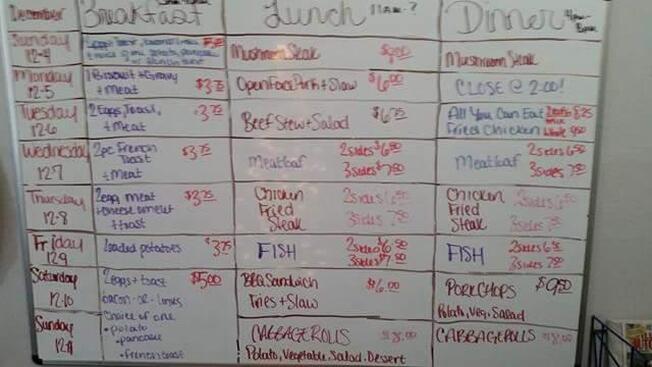 December Breakfast Lunch 11am-? Dinner
Sunday
12-4
Mushroom Steak
Mushroom Steak
Monday
12-5
1 Biscuit + Gravy
+ Meat
$3.75
Open Face Pork + Slaw $6.00
CLOSE @ 2:00!
Tuesday
12-6
2 Eggs, Toast,
+ Meat
3.75
Beef Stew + Salad $6.75
All You Can Eat
Fried Chicken
Wednesday
12-7
2pc French
Toast
+ Meat
$3.75
Meatloaf
2 sides $6.50
3 sides $7.50
Meatloaf
2 sides 6.50
3 sides 7.50
Thursday
12-8
2 egg meat
+ cheese omelet
+ toast
$3.75
Chicken
Fried
Steak
2 sides 6.50
3 sides 7.50
Chicken
Fried
Steak
2 sides 6.50
3 sides 7.50
Friday
12-9
Loaded potatoes $3.75
FISH
2 sides $6.50
3 sides $7.50
FISH
2 sides 6.50
3 sides 7.50
Saturday
12-10
2 eggs + toast $5.00
bacon -or- links
Choice of one
• potato
• pancake
• french toast
BBQ Sandwich
Fries + Slaw
$6.00
PORK CHOPS $9.50
Potato, Veg, Salad
Sunday
CABBAGE ROLLS $8.00
Potato, Vegetable, Salad, Dessert
CABBAGE ROLLS $8.00